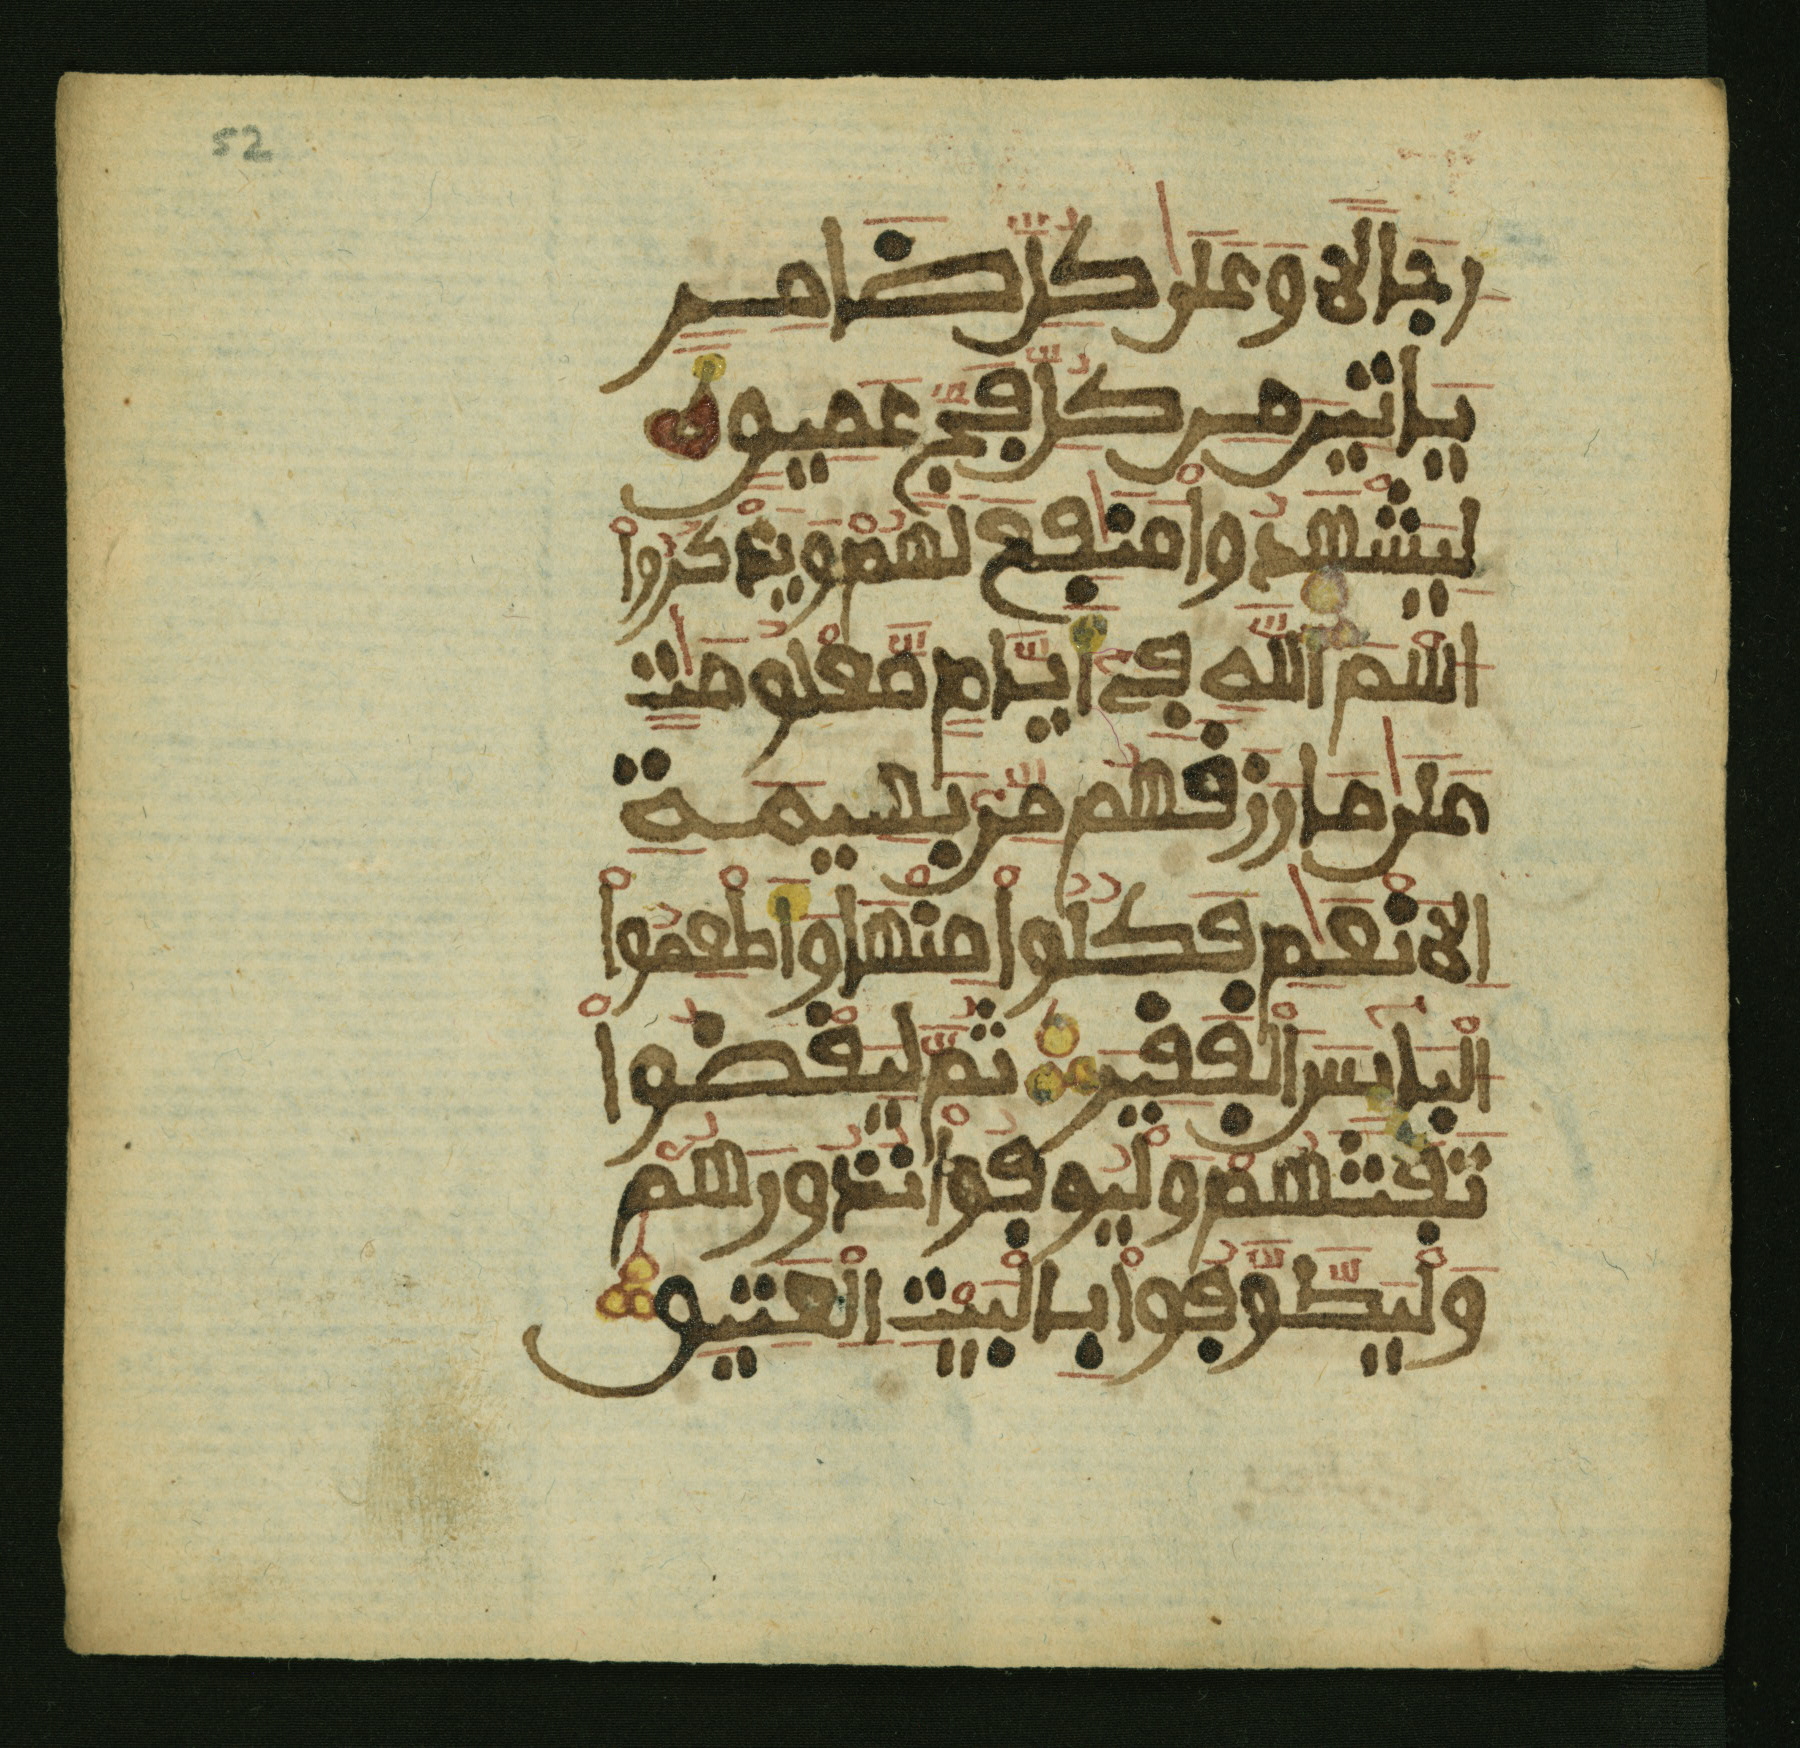 52
رِجَالًا وَعَلَىٰ كُلِّ ضَامِرٍ
يَاتِينَ مِن كُلِّ فَجٍّ عَمِيقٍ
لِيَشْهَدُواْ مَنَٰفِعَ لَهُمْ وَيَذْكُرُواْ
اَسْمَ اَللَّهِ فِي أَيَّامٍ مَّعْلُومَٰتٍ
عَلَىٰ مَا رَزَقَهُم مِّنۢ بَهِيمَةِ
اِلَانْعَٰمِ فَكُلُواْ مِنْهَا وَأَطْعِمُواْ
اَلْبَايِسَ اَلْفَقِيرَ ثُمَّ لْيَقْضُواْ
تَفَثَهُمْ وَلْيُوفُواْ نُذُورَهُمْ
وَلْيَطَّوَّفُواْ بِالْبَيْتِ اِلْعَتِيقِ